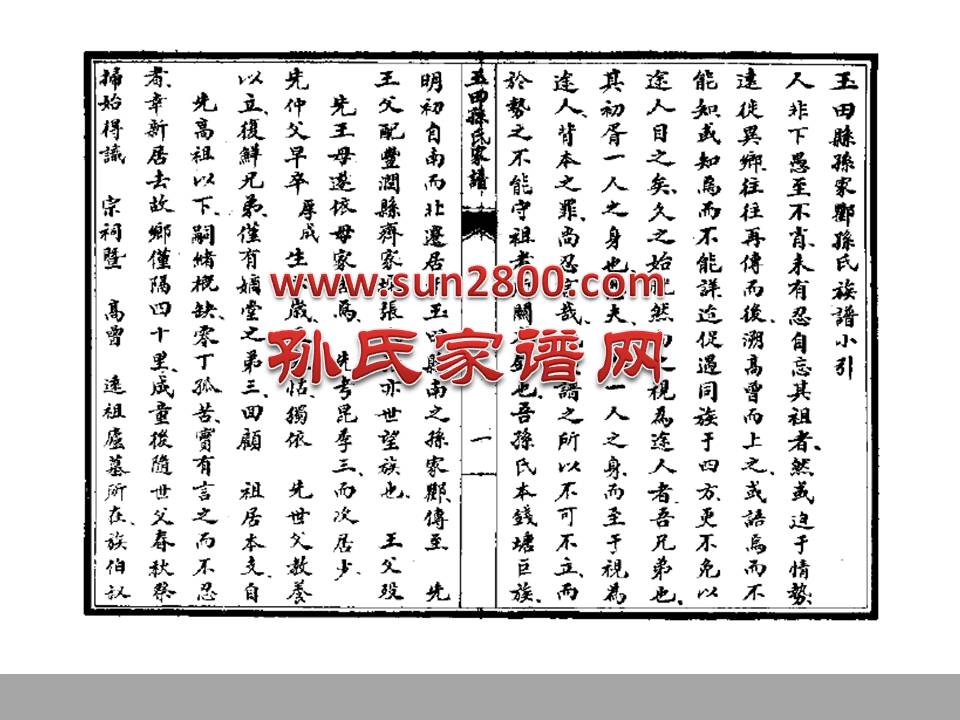 玉田縣孫家鄽孫氏族譜小引
人非下愚至不肖未有忍自忘其祖者然或迫于情勢
遠徙異鄉往往再傳而後溯高曾而上之或語焉而不
能知或知焉而不能詳迨促過同族于四方更不免以
途人目之矣久之始 然 視為途人者吾兄弟也
其初胥一人之身也 夫 一人之身而至于視為
途人背本之罪尚忍言哉 譜之所以不可不立而
於勢之不能守祖者 關 也吾孫氏本錢塘巨族
玉田孫氏家譜
一
明初自南而北遷居 玉田縣南之孫家鄽傳至 先
王父配豐潤縣齊家 張 亦世望族也 王父歿
先王母遂依母家 焉 先考昆季三而次居少
先仲父早卒 厚成 生 歲 怙獨依 先世父教養
以立復鮮兄弟僅有嫡堂之弟三回顧 祖居本支自
先高祖以下嗣緒概缺零丁孤苦實有言之而不忍
者幸新居去故鄉僅隔四十里成童後隨世父春秋祭
掃始得謁 宗祠暨 高曾 遠祖廬墓所在族伯叔
www.sun2800.com
孙氏家谱网